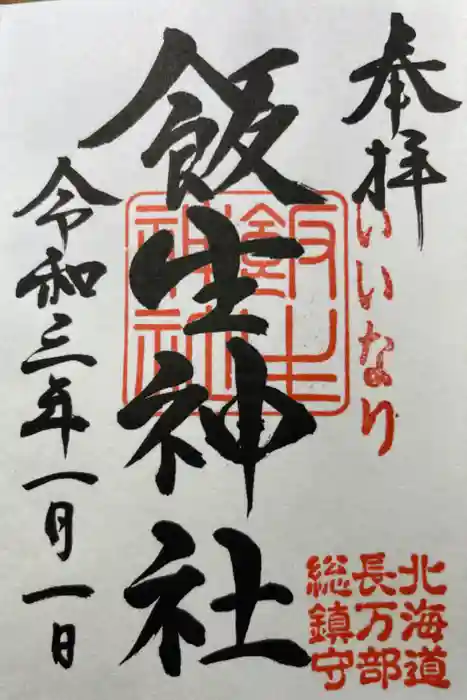 奉拝
いいなり
北海道
長万部
総鎮守
飯生神社
飯生
神社
令和三年一月一日